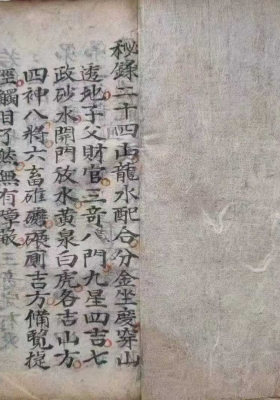 秘錄二十四山龍水配合分金坐度穿山
透地子父財官三奇八門九星四吉七
政砂水開門放水黃泉白虎各吉山方
四神八將六畜碓磑碾廁吉方備覽提
徑觸目了然無有障蔽